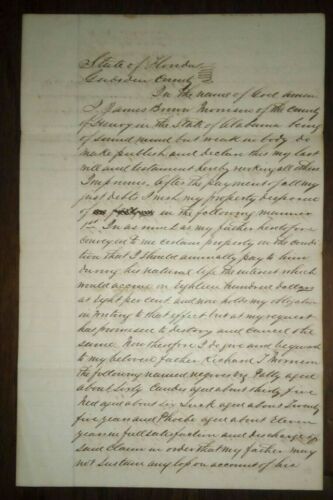 State of Florida
County
In the name of God amen
I James Brown Morrison of the County
of Henry in the State of Alabama being
of sound mind but weak in body do
make publish and declare this my last
will and testament hereby revoking all others
Imprimis. After the payment of all my
just debts I wish my property disposed
of in the following manner
1st. In as much as my father heretofore
conveyed to me certain property on the condi
tion that I should annually pay to him
during his natural life the interest which
would accrue on Eighteen hundred dollars
at Eight per cent and now holds my obligation
in writing to that effect but as my request
has promised to destroy and cancel the
same. Now therefore I do give and bequeath
to my beloved father Richard T Morrison
the following named negroes by Polly aged
about Sixty Candis aged about thirty five
Ned aged about six aged about Twenty
five years and Phoebe aged about Eleven
years in full satisfaction and discharge of
said Claim in order that my father may
not sustain any loss on account of his